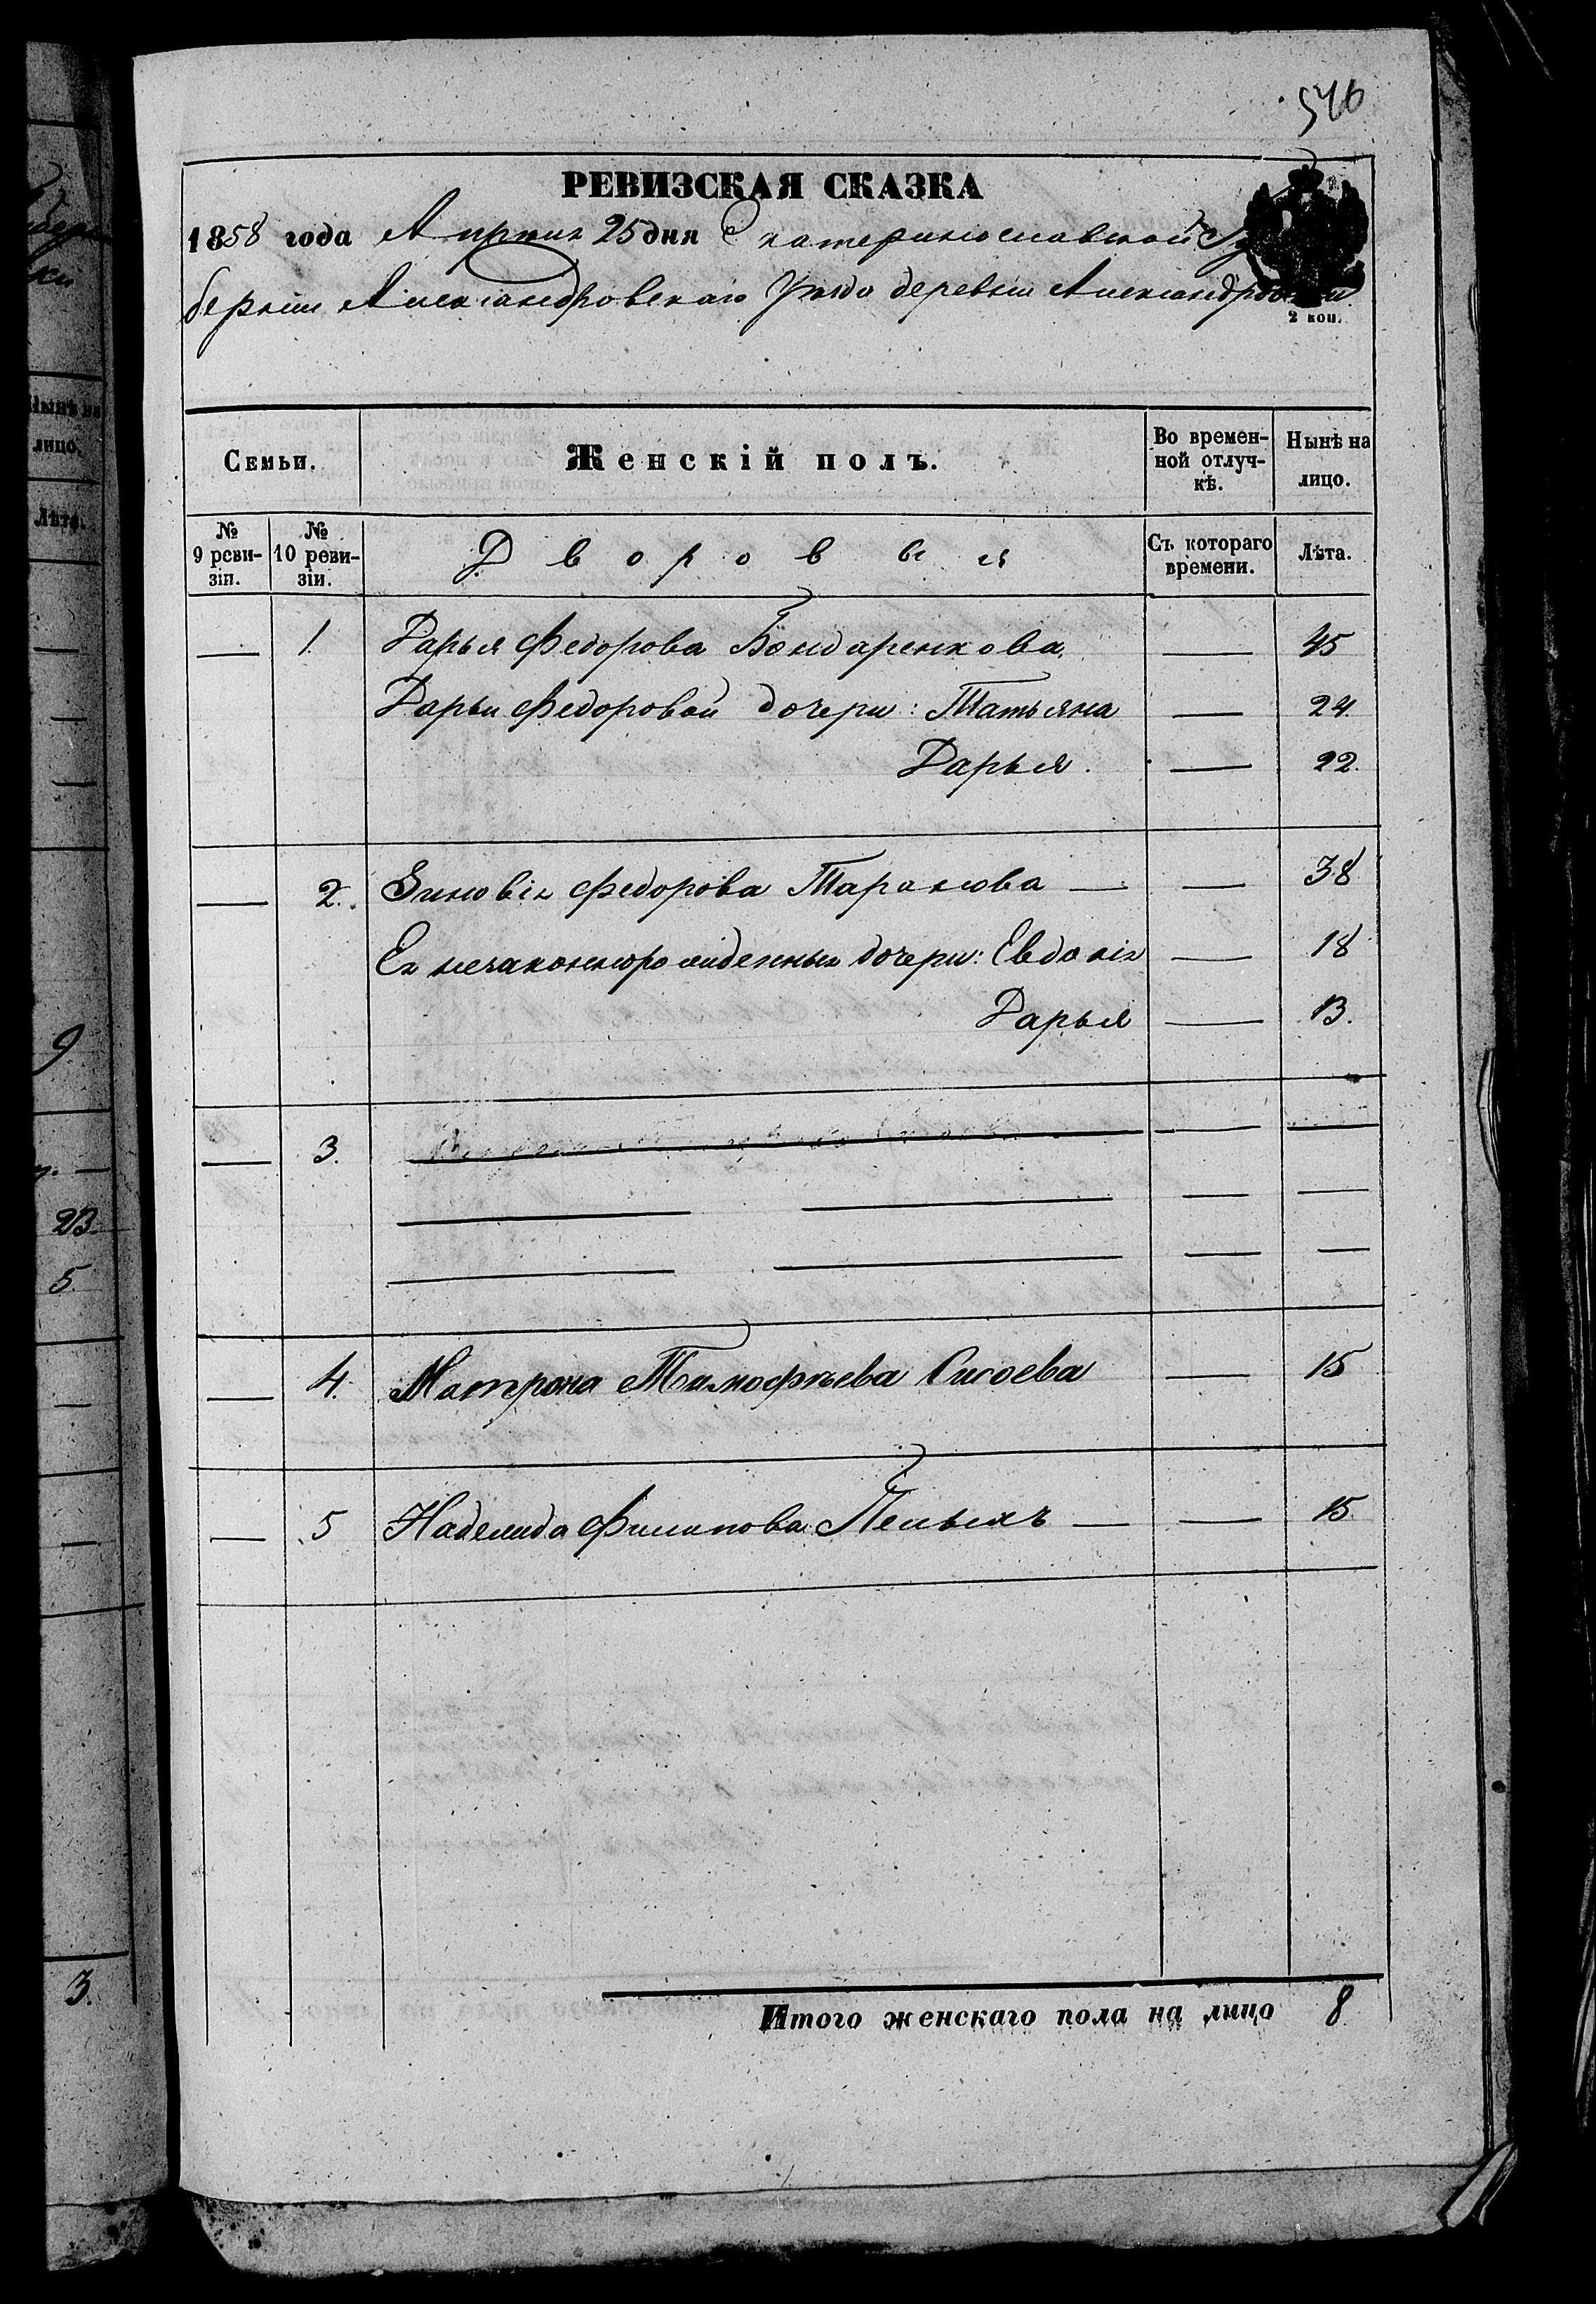 546
РЕВИЗСКАЯ СКАЗКА
1858 года Апреля 25 дня Екатеринославской Гу
берніи Александровскаго Уѣзда деревни Александровки
2 коп.
Семьи.
Женскій полъ.
Во времен-
ной отлуч-
кѣ.
Нынѣ на
лицо.
№
9 реви-
зіи.
№
10 реви-
зіи.
Дворовыя
Съ котораго
времени.
Лѣта.
— 1. Дарья Федорова Бондаренкова — 45
Дарьи Федоровой дочери: Татьяна — 24.
Дарья. — 22.
— 2. Зиновія Федорова Таранова — — 38
Ея незаконнорожденныя дочери: Евдокія — 18
Дарья — 13.
— 3. — — —
— — — —
— — — —
— 4. Матрона Тимофѣева Сисоева — 15
— 5 Надежда Филипова — — 15.
Итого женскаго пола на лицо 8
Нынѣ на
лицо.
Лѣта.
9
23
5.
3.